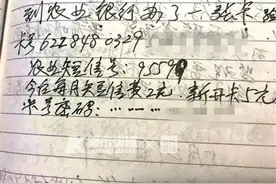 到农业银行办了一张卡
卡号 622848 0329
农业短信号: 9559
今年每月短信费2元 新开卡5元
卡号密码: ... ... ...